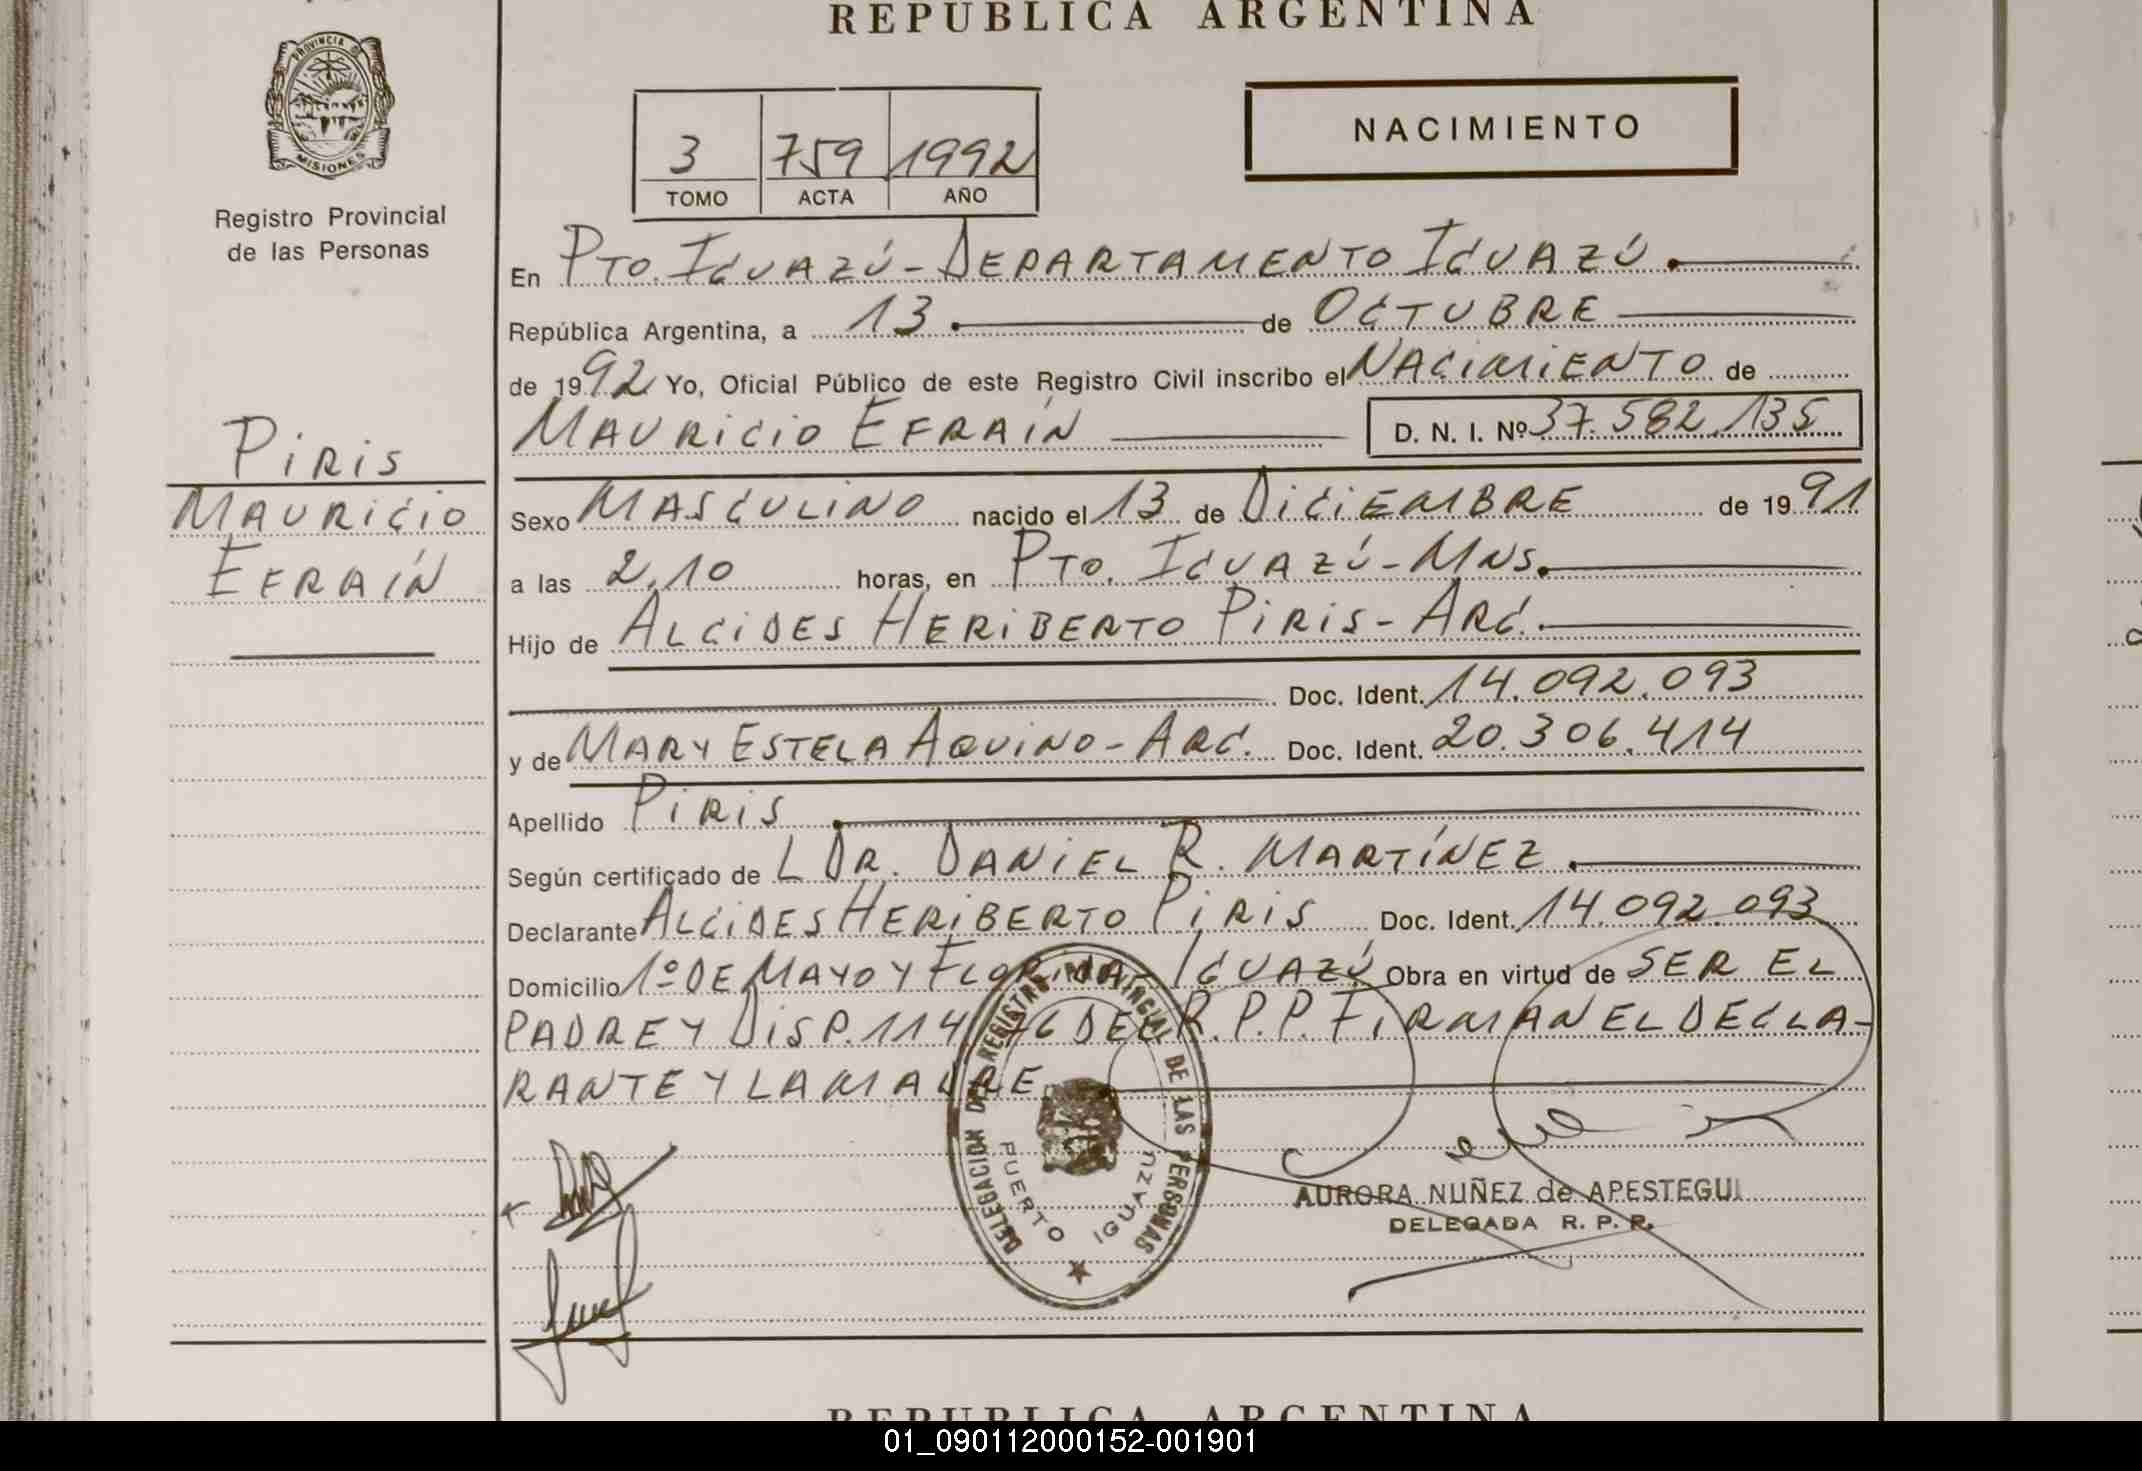 REPUBLICA ARGENTINA
PROVINCIA DE
MISIONES
Registro Provincial
de las Personas
3 759 1992
TOMO ACTA AÑO
NACIMIENTO
En PTO. IGUAZÚ - DEPARTAMENTO IGUAZÚ.
República Argentina, a 13 de OCTUBRE
de 1992 Yo, Oficial Público de este Registro Civil inscribo el NACIMIENTO de
MAURICIO EFRAÍN D. N. I. Nº 37.582.135
PIRIS
MAURICIO
EFRAÍN
Sexo MASCULINO nacido el 13 de DICIEMBRE de 1991
a las 2,10 horas, en PTO. IGUAZÚ - MNS.
Hijo de ALCIDES HERIBERTO PIRIS - ARG.
Doc. Ident. 14.092.093
y de MARY ESTELA AQUINO - ARG. Doc. Ident. 20.306.414
Apellido PIRIS
Según certificado de L DR. DANIEL R. MARTÍNEZ.
Declarante ALCIDES HERIBERTO PIRIS Doc. Ident. 14.092.093
Domicilio 1º DE MAYO Y FLORIDA - IGUAZÚ Obra en virtud de SER EL
PADRE Y DISP. 114 DEL R.P.P. FIRMAN EL DECLA-
RANTE Y LA MADRE
DELEGACION DEL REGISTRO PROVINCIAL DE LAS PERSONAS
PUERTO IGUAZU
AURORA NUÑEZ de APESTEGUI
DELEGADA R. P. P.
REPUBLICA ARGENTINA
01_090112000152-001901